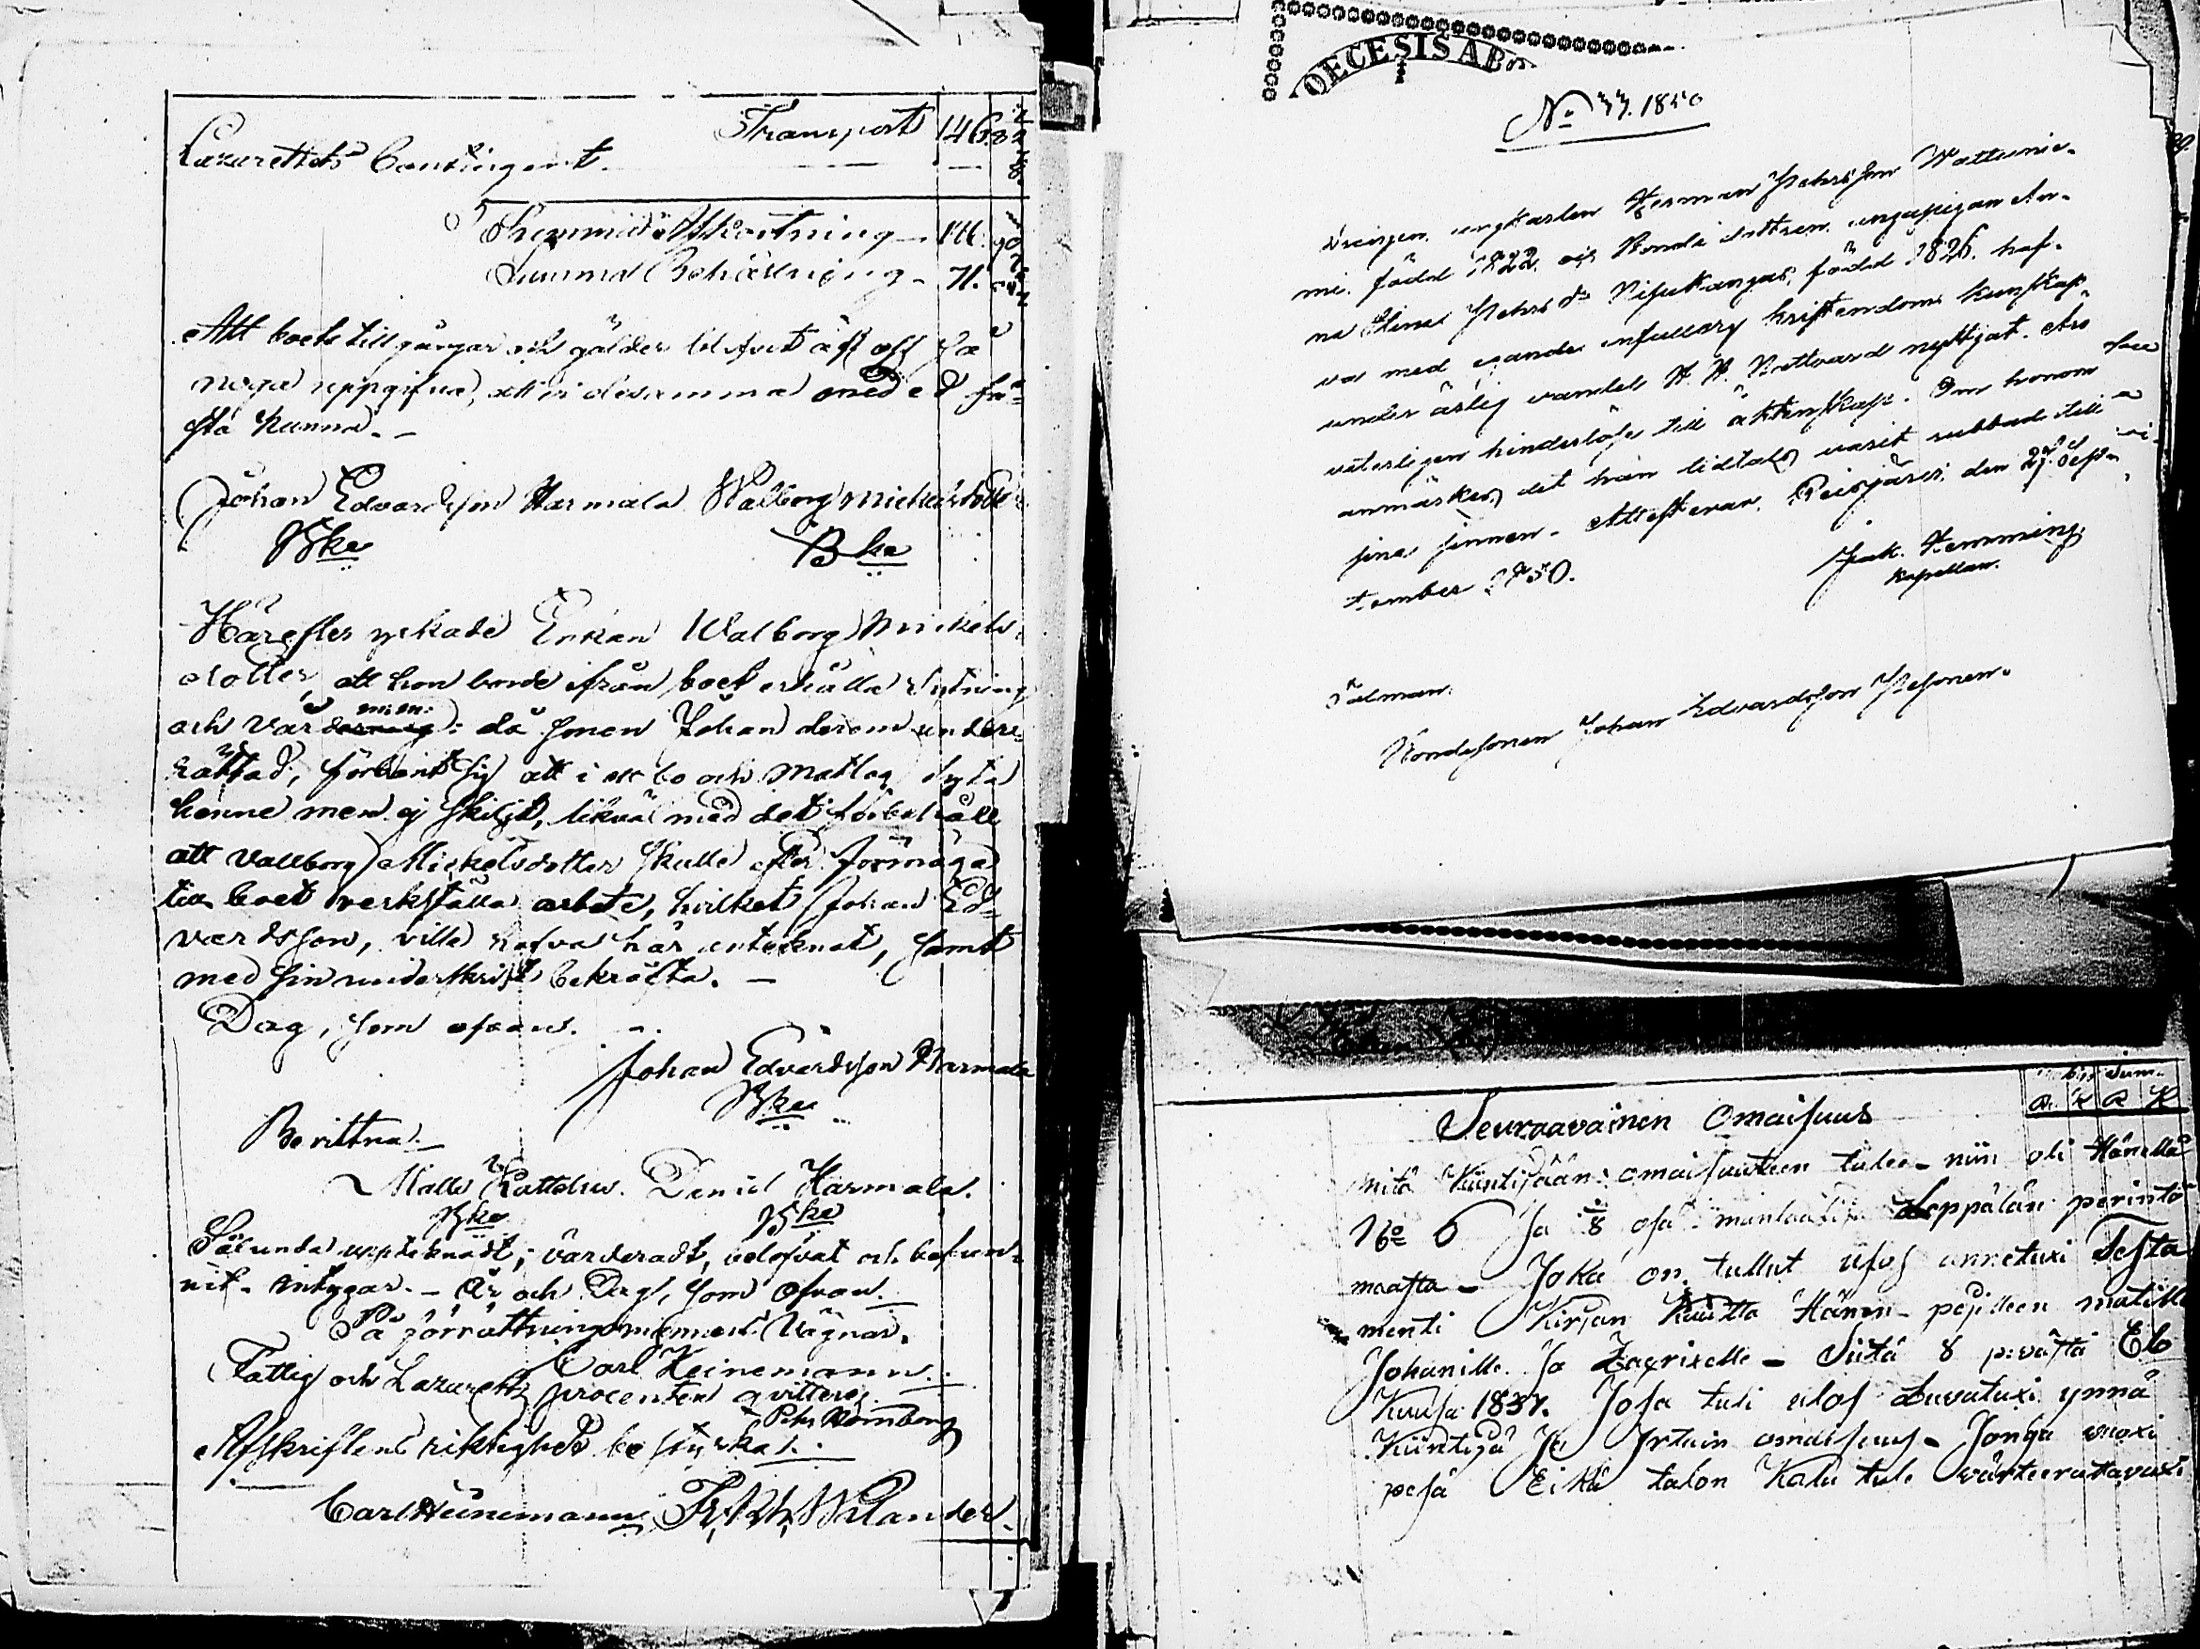 Transport 146. 82
Lazarettets Contingent. — — 8.
Summa Afkortning — 146. 90
Summa Behållning - 71.
Att boets tillgångar och gälder blifvit af oss så
noga uppgifne, att vi desamma med ed fä-
sta kunna. —
Johan Edvardsson Harmala Walborg Mickelsdotter
Bke Bke
Härefter yrkade Enkan Walborg Mickels-
dotter, att hon borde ifrån boet erhålla sytning
och vård: då sonen Johan derom under-
rättad, förbant sig att i ett bo och matlag syta
henne men ej skiljt, likväl med det förbehåll
att Vallborg Mickelsdotter skulle efter förmåga
till boet verkställa arbete, hvilket Johan Ed-
vardsson, ville hafva här antecknat, samt
med sin underskrift bekräfta. —
Dag, som ofvan.
Johan Edvardsson Harmala
Bke
Bevittna. —
Matts Daniel Harmala.
Bke Bke
Sålunda upptecknadt, värderadt, belefvat och befun-
nit. Intygar. — År och Dag, som ofvan.
På förrättningsmannens Vägnar.
Carl Heinemann.
Fattig och Lazaretts procenten qvitteras.
Pehr
Afskriftens riktighet bestyrka:
Carl Heinemann Wilander.
OECESIS ABO
No 77. 1850
Drängen, ungkarlen Herman Pehrsson Wattunie-
mi, född 1822 och Bonde dottren, ungapigan An-
na Elina Pehrs dr född 1826. haf-
va med egande christendoms kunskap,
under ärlig vandel H. H. Nattvard nyttjat. Äro
veterligen hinderlöse till äktenskap. Om honom
anmärkes, det han tidtals varit rubbad till
sina sinnen. Attesterar. Reisjärvi den 27 Sep-
tember 1850.
Jak. Hemming
Kapellan.
Talman:
Bondesonen Johan Edvardsson
Seuraavainen Omaisuus
Sum.
R. K R K
mitä Kiintiään: omaisuuteen tulee - niin oli Hänellä
No 6 Ja 1/8 osa mantaalia Leppälän perintö
maasta - Joka on tullut ulos annetuxi Testa
menti Kirjan Kautta Hänen - pojilleen matille
Johanille Ja Zagrixelle - Siitä 8 päivästä Elo
Kuusa 1837. Josa tuli ulos Luvatuxi ynnä
Kiintiä Ja Irtain omaisuus - Jonga vuoxi
pesä Eikä talon Kalu tule värteerattavaxi